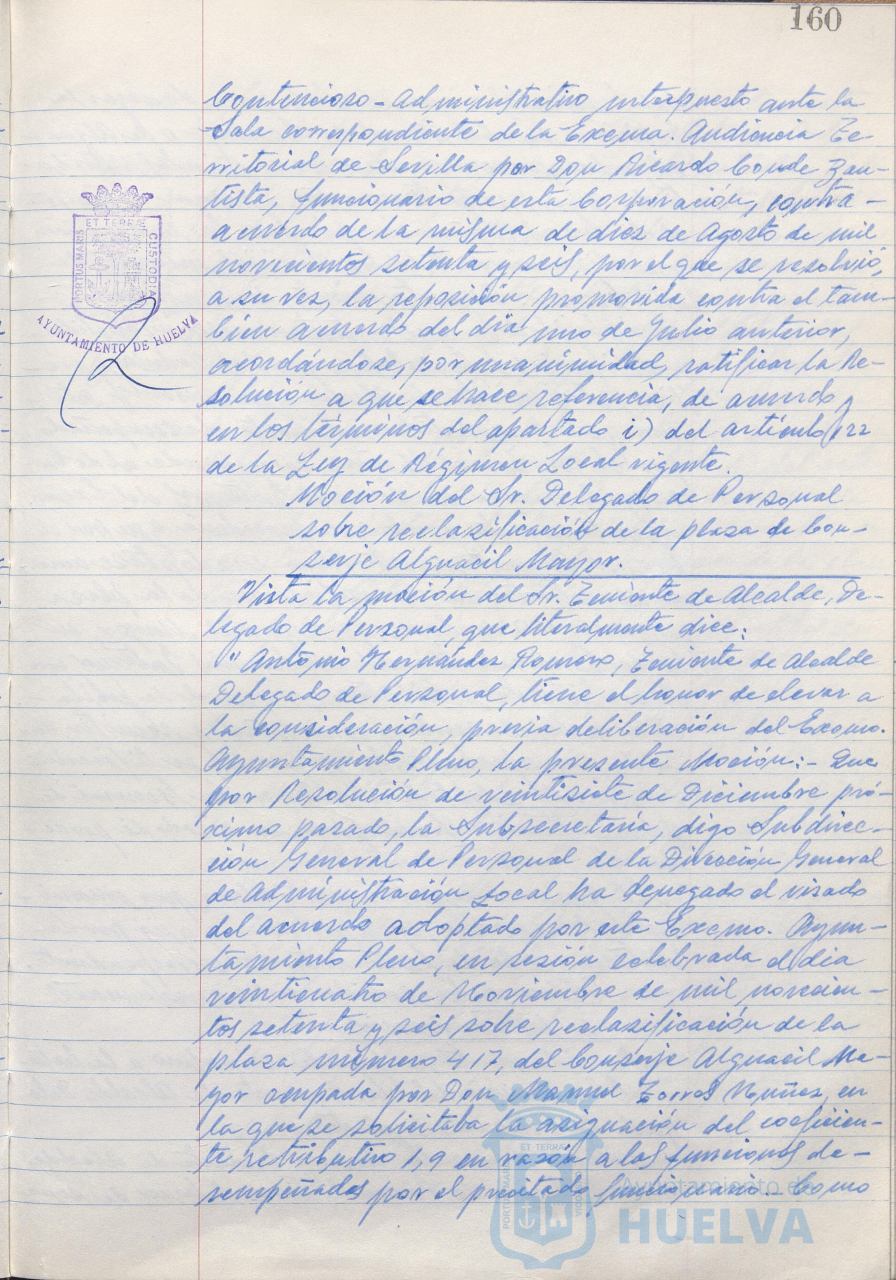 160
Contencioso-Administrativo interpuesto ante la
Sala correspondiente de la Excma. Audiencia Te-
rritorial de Sevilla por Don Ricardo Conde Zan-
tista, funcionario de esta Corporación, contra
acuerdo de la misma de diez de Agosto de mil
novecientos setenta y seis, por el que se resolvió,
a su vez, la reposición promovida contra el tam-
bién acuerdo del día uno de Julio anterior,
acordándose, por unanimidad, ratificar la Re-
solución a que se hace referencia, de acuerdo
en los términos del apartado i) del artículo 122
de la Ley de Régimen Local vigente.
Moción del Sr. Delegado de Personal
sobre reclasificación de la plaza de Con-
serje Alguacil Mayor.
Vista la moción del Sr. Teniente de Alcalde, De-
legado de Personal, que literalmente dice:
"Antonio Hernández Romero, Teniente de Alcalde
Delegado de Personal, tiene el honor de elevar a
la consideración, previa deliberación del Excmo.
Ayuntamiento Pleno, la presente Moción:- Que
por Resolución de veintisiete de Diciembre pró-
ximo pasado, la Subsecretaría, digo Subdirec-
ción General de Personal de la Dirección General
de Administración Local ha denegado el visado
del acuerdo adoptado por este Excmo. Ayun-
tamiento Pleno, en sesión celebrada el día
veinticuatro de Noviembre de mil novecien-
tos setenta y seis sobre reclasificación de la
plaza número 417, del Conserje Alguacil Ma-
yor ocupada por Don Manuel Torres Núñez, en
la que se solicitaba la asignación del coeficien-
te retributivo 1,9 en razón a las funciones de-
sempeñadas por el precitado funcionario.- Como
PORTUS MARIS ET TERRAE CUSTODIA
AYUNTAMIENTO DE HUELVA
PORTUS MARIS ET TERRAE CUSTODIA
Ayuntamiento de
HUELVA